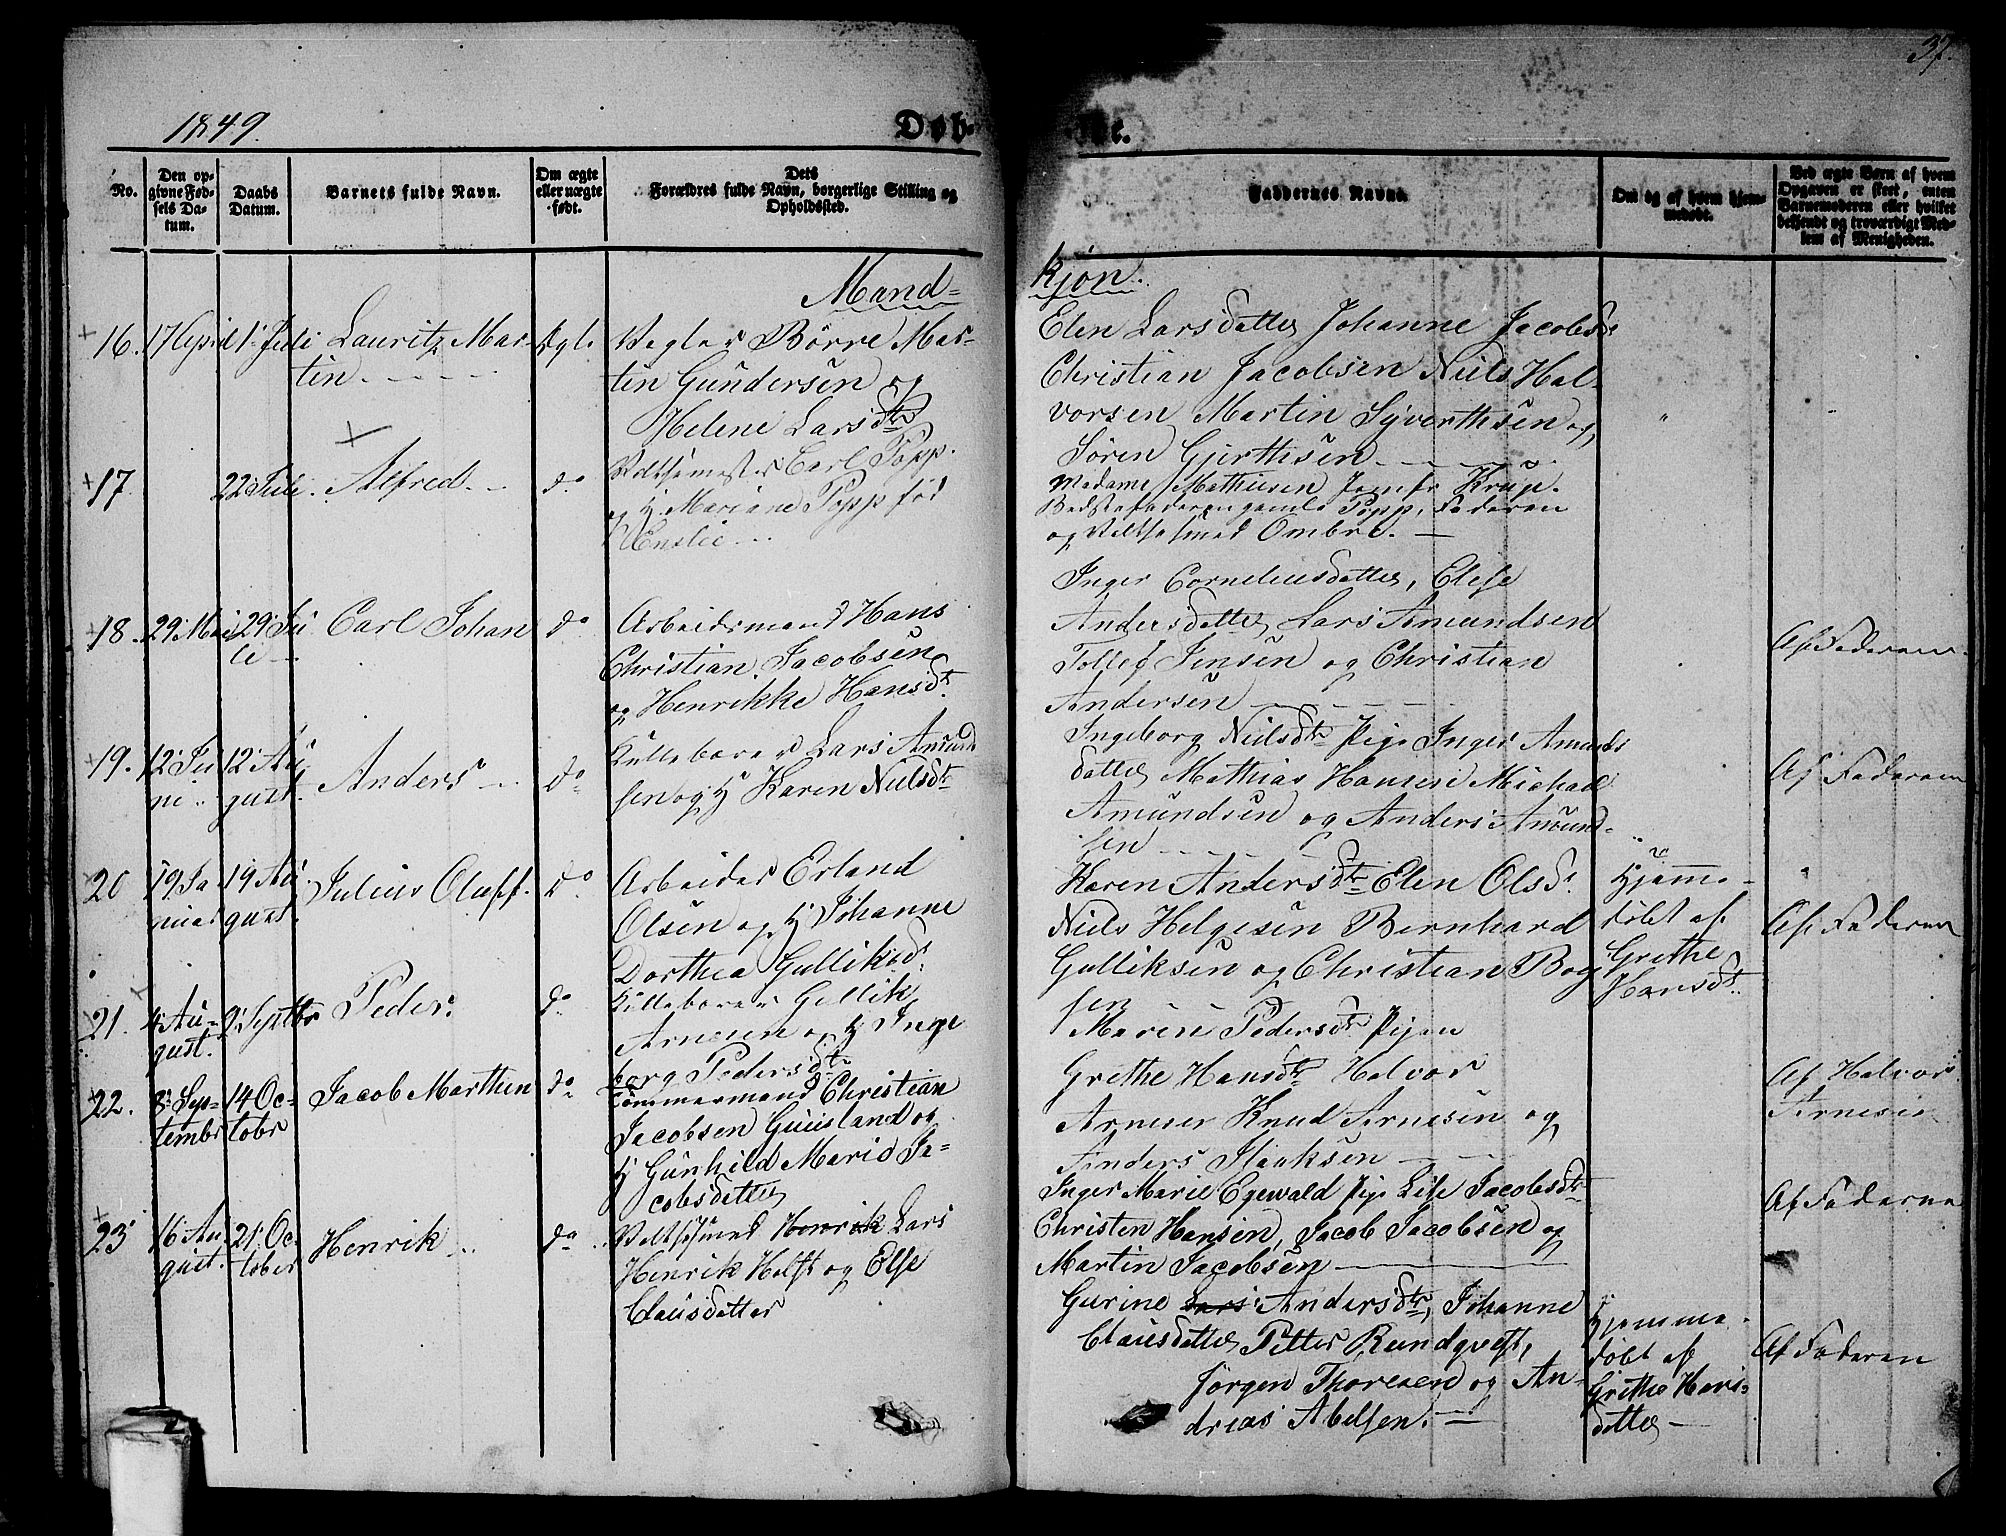 37.
1849.
Døb-
te.
No.
Den op-
givne Fød-
sels Da-
tum.
Daabs
Datum.
Barnets fulde Navn.
Om ægte
eller uægte
født.
Dets
Forældres fulde Navn, borgerlige Stilling og
Opholdssted.
Faddernes Navne.
Om og af hvem hjem-
medøbt.
Ved ægte Børn af hvem
Opgaven er skeet, enten
Barnemoderen eller hvilket
bekjendt og troværdigt Med-
lem af Menigheden.
Mand=
kjøn.
16. 1: Juli Lauritz Mar-
tin.
Børre Mar-
tin Gundersen og
Helene Larsdtr
Elen Larsdatter Johanne Jacobsdr
Christian Jacobsen Niels Hal-
vorsen Martin Syverthsen og
Søren Gjerthsen
17 22 Juli. Alfred. do
Carl Popp.
og H Mariane Popp fød
Enslie
Madame Mathiesen Jomfr Krup.
Bedstefaderen gamle Popp, Faderen
og Ombre.
18. 29 Mai 29 Ju
li
Carl Johan do
Arbeidsmand Hans
Christian Jacobsen
og Henrikke Hansdtr
Inger Corneliusdatter, Elise
Andersdatter Lars Amundsen
Tollef Jensen og Christian
Andersen
Af Faderen.
19. 12 Ju
ni
12 Au
gust.
Anders do
Kullebærer Lars Amund
sen og H Karen Nielsdtr
Ingeborg Nielsdtr Pige Inger Amunds
datter Mathias Hansen Michael
Amundsen og Anders Amund-
sen
Af Faderen
20 19 Ja
nuar
19 Au
gust.
Julius Oluff. do
Arbeider Erland
Olsen og H Johanne
Dorthea Gulliksd.
Karen Andersdtr Elen Olsd.
Niels Helgesen Bernhard
Gulliksen og Christian Boy
sen
Hjemme-
døbt af
Grethe
Hansdtr.
Af Faderen
21. 4 Au-
gust.
9 Septbr Peder. do
Kullebærer Gullik
Arnesen og H Inge
borg Pedersdtr
Maren Pedersdtr Pigen
Grethe Hansdtr Halvor
Arnesen Knud Arnesen og
Anders Isaksen
Af Halvor
Arnesen
22. 8 Sep-
tembr
14 Oc-
tobr
Jacob Marthin do
Tømmermand Christian
Jacobsen Guusland og
H Gunhild Marie Ja-
cobsdatter
Inger Marie Egewald Pige Lise Jacobsdtr
Christen Hansen, Jacob Jacobsen og
Martin Jacobsen
Af Faderne
23 16 Au
gust.
21 Oc-
tober
Henrik do
Henrik Lars
Henrik Holst og Else
Clausdatter
Gurine Lars Andersdtr, Johanne
Clausdatter Petter Rundqvist,
Jørgen Thoresen og An-
dreas Abelsen.
Hjemme-
døbt af
Grethe Hans-
datter
Af Faderen